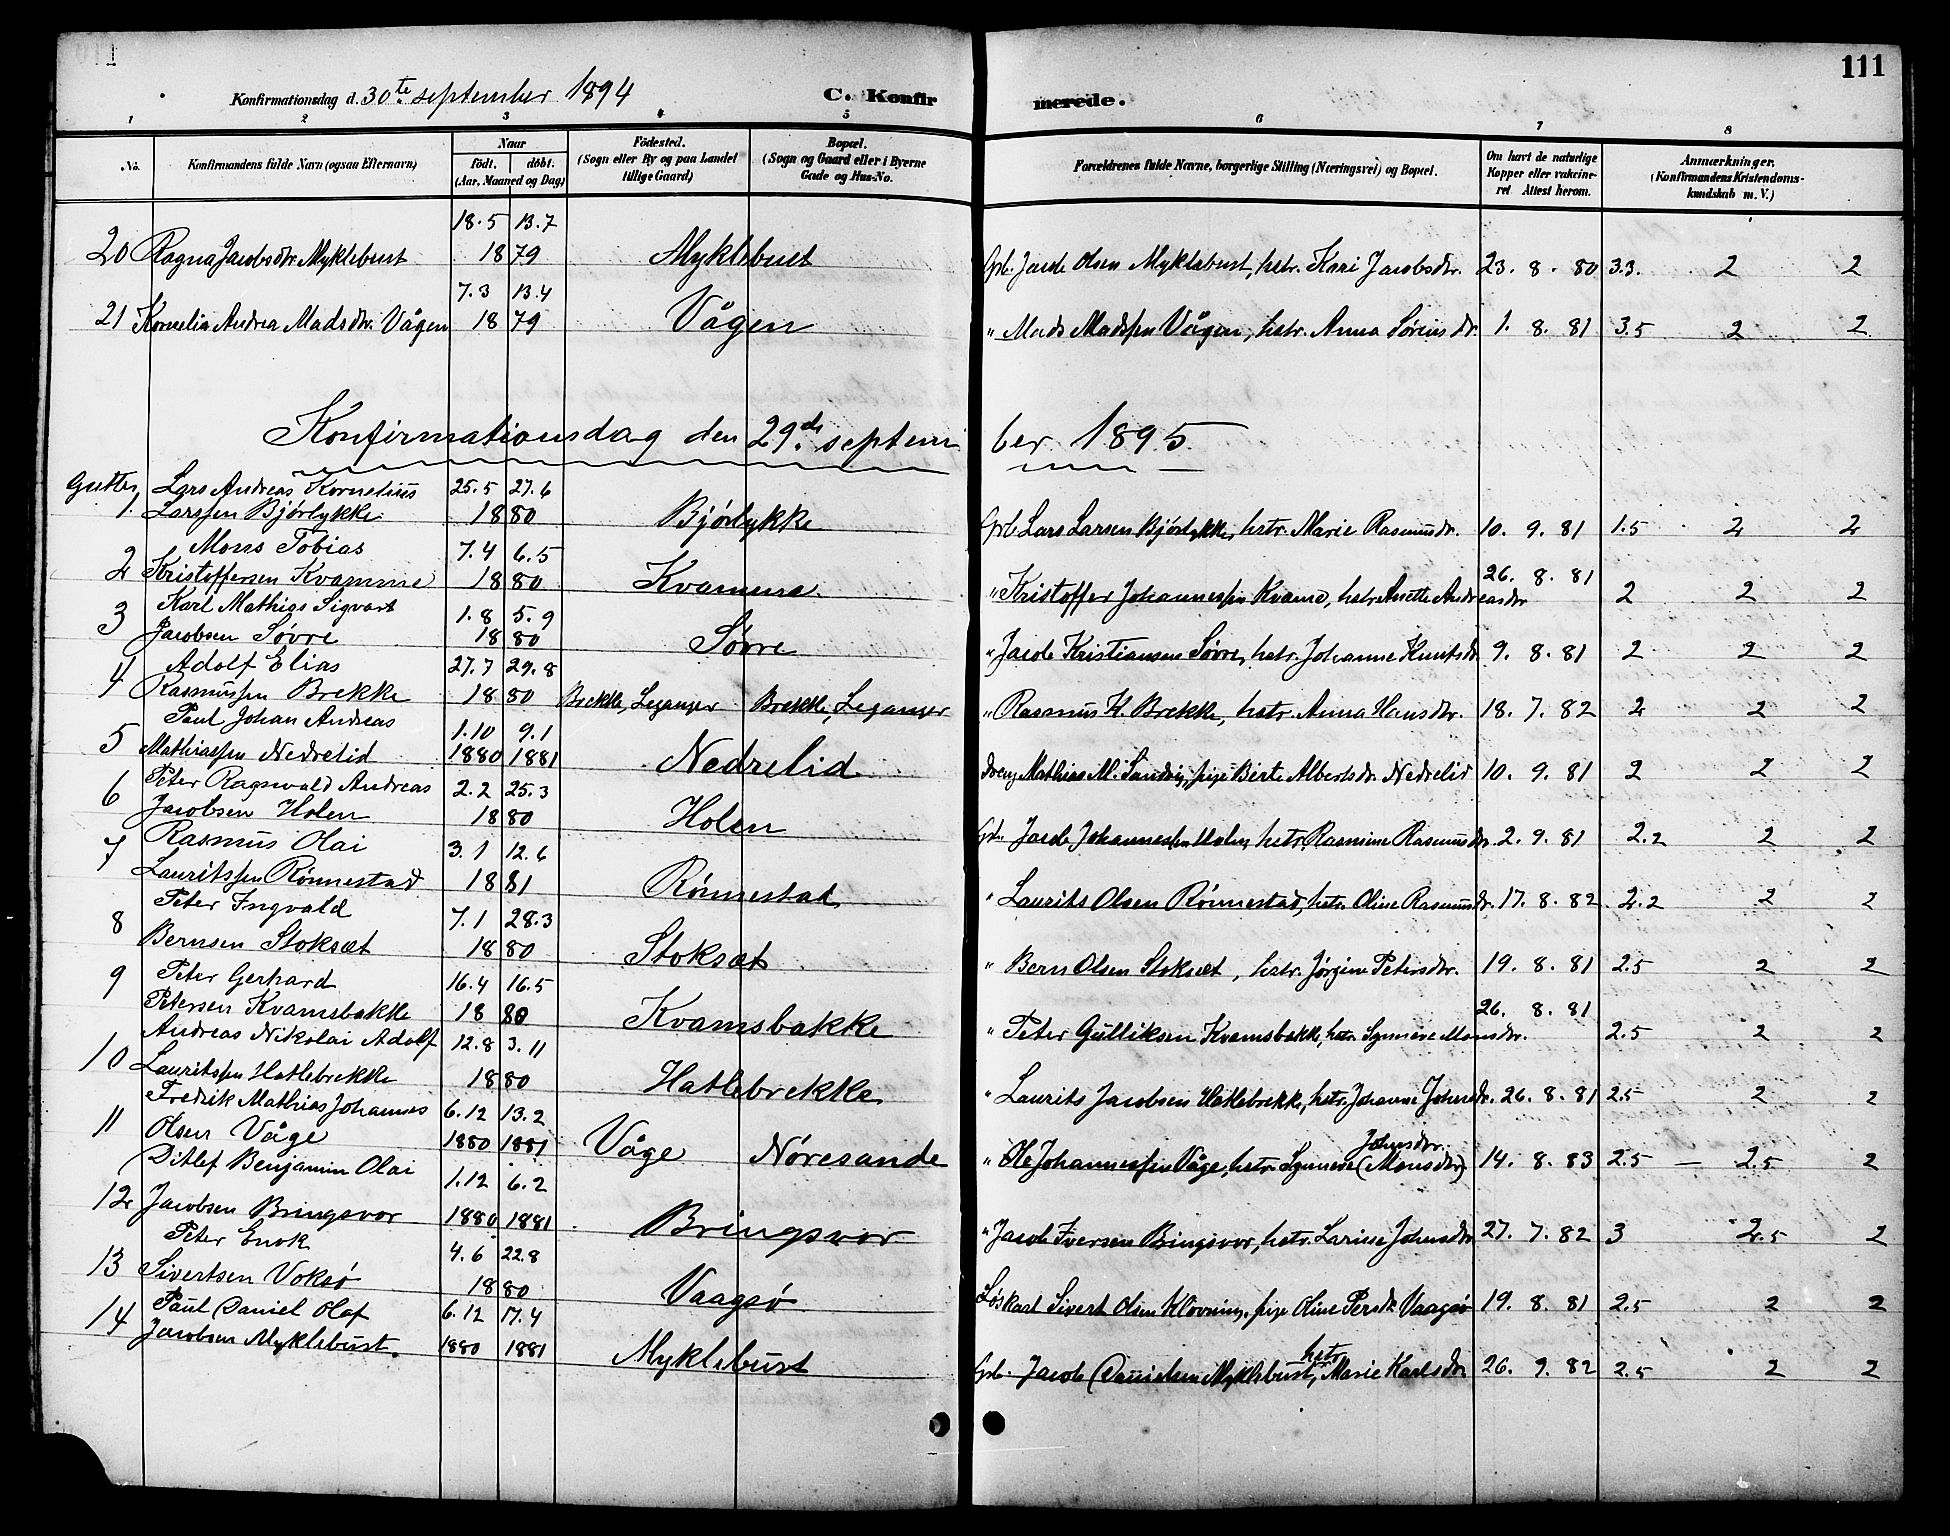 111
Konfirmationsdag d. 30te september 1894 C. Konfir merede.
1 2 3 4 5 6 7 8
No. Konfirmandens fulde Navn (ogsaa Efternavn) Naar født. døbt. (Aar, Maaned og Dag) Fødested. (Sogn eller By og paa Landet tillige Gaard) Bopæl. (Sogn og Gaard eller i Byerne Gade og Hus-No. Forældrenes fulde Navne, borgerlige Stilling (Næringsvei) og Bopæl. Om havt de naturlige Kopper eller vakcineret Attest herom. Anmærkninger. (Konfirmandens Kristendomskundskab m. V.)
18.5 13.7
20 Ragna Jacobsdr Myklebust 1879 Myklebust Grb. Jacob Olsen Myklebust, hstr. Kari Jacobsdr. 23. 8. 80 3.3. 2 2
7.3 13.4
21 Kornelia Andrea Madsdr. Vågen 1879 Vågen " Mads Madssen Vågen, hstr. Anna Sørensdr. 1. 8. 81 3.5 2 2
Konfirmationsdag den 29de septem ber 1895.
Gutter, Lars Andreas Kornelius 25.5 27.6
1. Larssen Bjørlykke 1880 Bjørlykke Grb. Lars Larsen Bjørlykke, hstr. Marie Rasmusdr. 10. 9. 81 1.5 2 2
Mons Tobias 7.4 6.5
2 Kristoffersen Kvamme 1880 Kvamme " Kristoffer Johannessen Kvame, hstr. Anette Andreasdr 26. 8. 81 2 2 2
Karl Mathias Sigvart 1.8 5.9
3 Jacobsen Søvre 1880 Søvre " Jacob Kristiansen Søvre, hstr. Johanne Knutsdr 9. 8. 81 2 2 2
Adolf Elias 27.7 29.8
4 Rasmussen Brekke 1880 Brekke, Leganger Brekke, Leganger " Rasmus K. Brekke, hstr. Anna Hansdr. 18. 7. 82 2 2 2
Paul Johan Andreas 1.10 9.1
5 Mathiassen Nedrelid 1880 1881 Nedrelid dreng Mathias M. Sandvig, pige Berte Albertsdr. Nedrelid 10. 9. 81 2 2 2
Peter Ragnvald Andreas 2.2 25.3
6 Jacobsen Holen 1880 Holen Grb. Jacob Johannessen Holen, hstr. Rasmine Rasmusdr. 2. 9. 81 2.2 2 2
Rasmus Olai 3.1 12.6
7 Lauritssen Rønnestad 1881 Rønnestad " Laurits Olsen Rønnestad, hstr. Oline Rasmusdr. 17. 8. 82 2.2 2 2
Peter Ingvald 7.1 28.3
8 Bernsen Stoksæt 1880 Stoksæt " Bern Olsen Stoksæt, hstr. Jørgine Petersdr. 19. 8. 81 2.5 2 2
9 Peter Gerhard 16.4 16.5
Petersen Kvamsbakke 1880 Kvamsbakke " Peter Gulliksen Kvamsbakke, hstr. Synneve Monsdr. 26. 8. 81 2.5 2 2
Andreas Nikolai Adolf 12.8 3.11
10 Lauritssen Hatlebrekke 1880 Hatlebrekke " Laurits Jacobsen Hatlebrekke, hstr. Johanne Johnsdr. 26. 8. 81 2.5 2 2
Fredrik Mathias Johannes 6.12 13.2
11 Olsen Våge 1880 1881 Våge Nøresande " Ole Johannessen Våge, hstr. Synneve Johnsdr. (Monsdr) 14. 8. 83 2.5 — 2.5 2
Ditlef Benjamin Olai 1.12 6.2
12 Jacobsen Bringsvor 1880 1881 Bringsvor " Jacob Iversen Bringsvor, hstr. Larine Johnsdr 27. 7. 82 3 2.5 2
Peter Enok 4.6 22.8
13 Sivertsen Voksø 1880 Vaagsø Løskarl Sivert Olsen Kløvning, pige Oline Persdr. Vaagsø 19. 8. 81 2.5 2 2
Paul Daniel Olaf 6.12 17.4
14 Jacobsen Myklebust. 1880 1881 Myklebust Grb. Jacob Danielsen Myklebust, hstr. Marie Karlsdr. 26. 9. 82 2.5 2 2